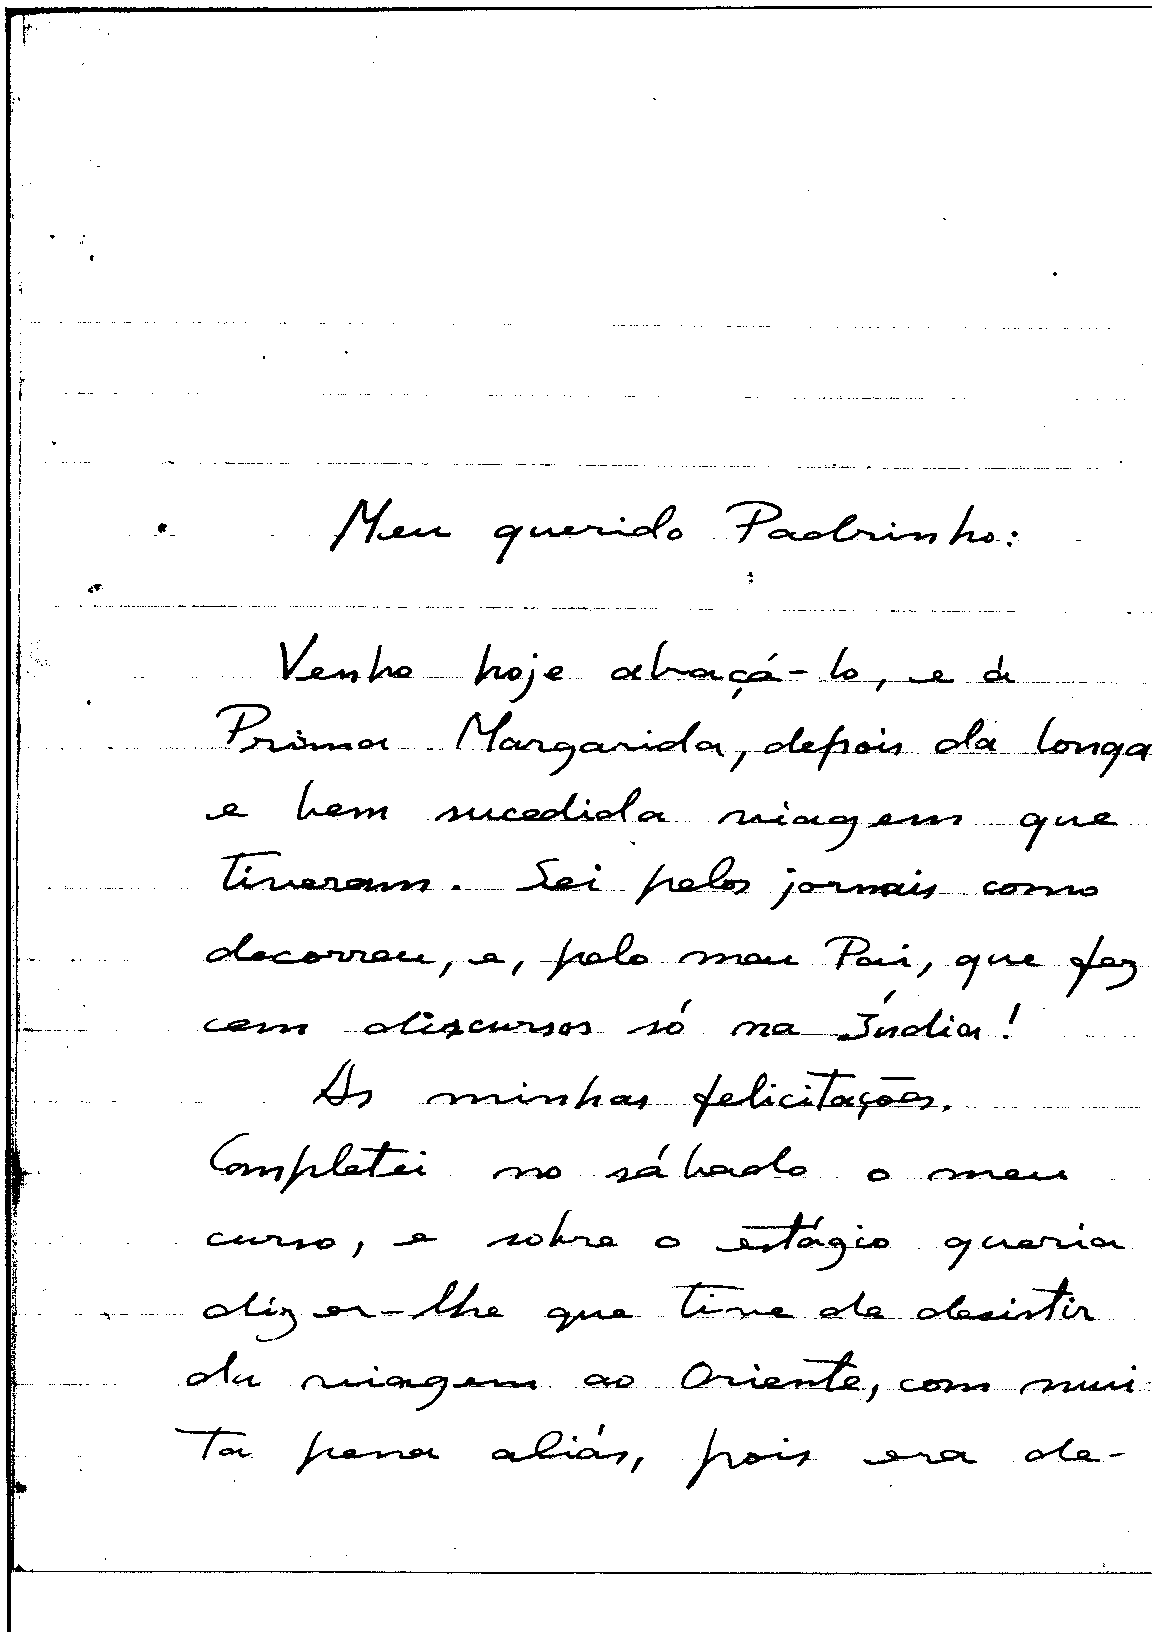 Meu querido Padrinho:
Venho hoje abraçá-lo, e à
Prima Margarida, depois da longa
e bem sucedida viagem que
tiveram. Sei pelos jornais como
decorreu, e, pelo meu Pai, que fez
cem discursos só na Índia!
As minhas felicitações.
Completei no sábado o meu
curso, e sobre o estágio queria
dizer-lhe que tive de desistir
da viagem ao Oriente, com mui-
ta pena aliás, pois era de-